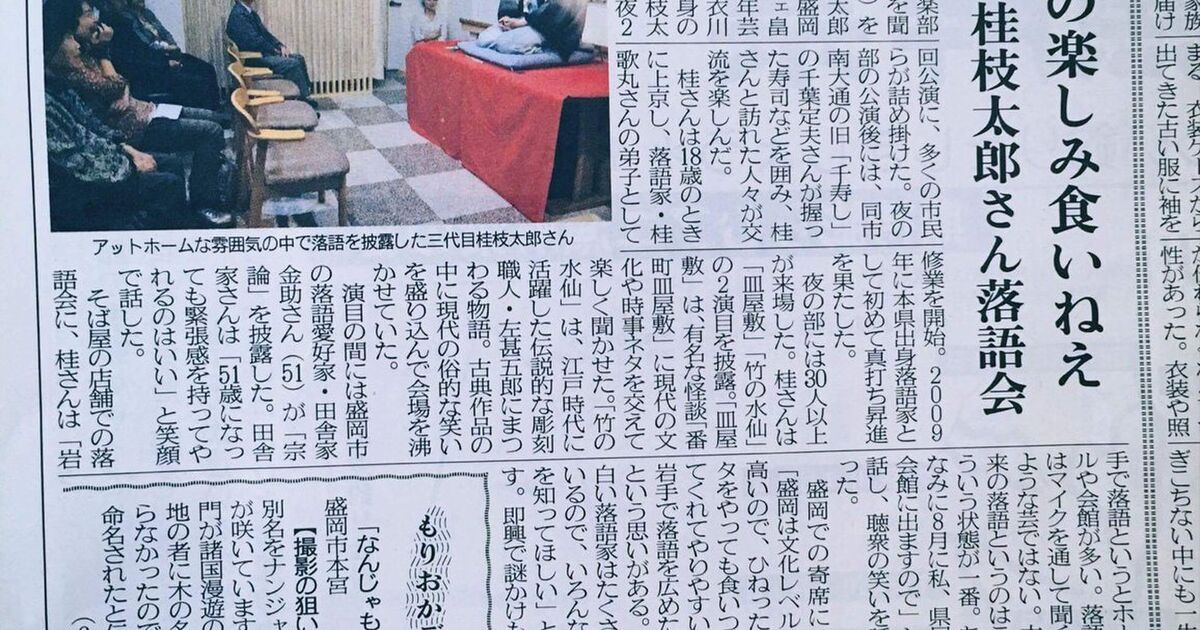 家族
届け
まる。衣装ケ
出てきた古い服に袖を
性があった。衣装や照
ぎこちない中にも一
の楽しみ食いねえ
桂枝太郎さん落語会
楽部
を聞
太郎
盛岡
ェ畠
年芸
衣川
身の
枝太
夜2
回公演に、多くの市民
らが詰め掛けた。夜の
部の公演後には、同市
南大通の旧「千寿し」
の千葉定夫さんが握っ
た寿司などを囲み、桂
さんと訪れた人々が交
流を楽しんだ。
桂さんは18歳のとき
に上京し、落語家・桂
歌丸さんの弟子として
アットホームな雰囲気の中で落語を披露した三代目桂枝太郎さん
修業を開始。2009
年に本県出身落語家と
して初めて真打ち昇進
を果たした。
夜の部には30人以上
が来場した。桂さんは
「皿屋敷」「竹の水仙」
の2演目を披露。「皿屋
敷」は、有名な怪談「番
町皿屋敷」に現代の文
化や時事ネタを交えて
楽しく聞かせた。「竹の
水仙」は、江戸時代に
活躍した伝説的な彫刻
職人・左甚五郎にまつ
わる物語。古典作品の
中に現代の俗的な笑い
を盛り込んで会場を沸
かせていた。
演目の間には盛岡市
の落語愛好家・田舎家
金助さん（51）が「宗
論」を披露した。田舎
家さんは「51歳になっ
ても緊張感を持ってや
れるのはいい」と笑顔
で話した。
そば屋の店舗での落
語会に、桂さんは「岩
手で落語というとホー
ルや会館が多い。落語
はマイクを通して聞
ような芸ではない。
来の落語というのは
ういう状態が一番。
なみに8月に私、県
会館に出ますので」
話し、聴衆の笑いを
った。
盛岡での寄席に
「盛岡は文化レベル
高いので、ひねった
タをやっても食いつ
てくれてやりやすい
岩手で落語を広めた
という思いがある。
白い落語家はたくさ
いるので、いろんな
を知ってほしい」と
す。即興で謎かけも
もりおか
「なんじゃも
盛岡市本宮
【撮影の狙い
別名をナンジャ
が咲いています
門が諸国漫遊の
地の者に木の名
らなかったので
命名されたと